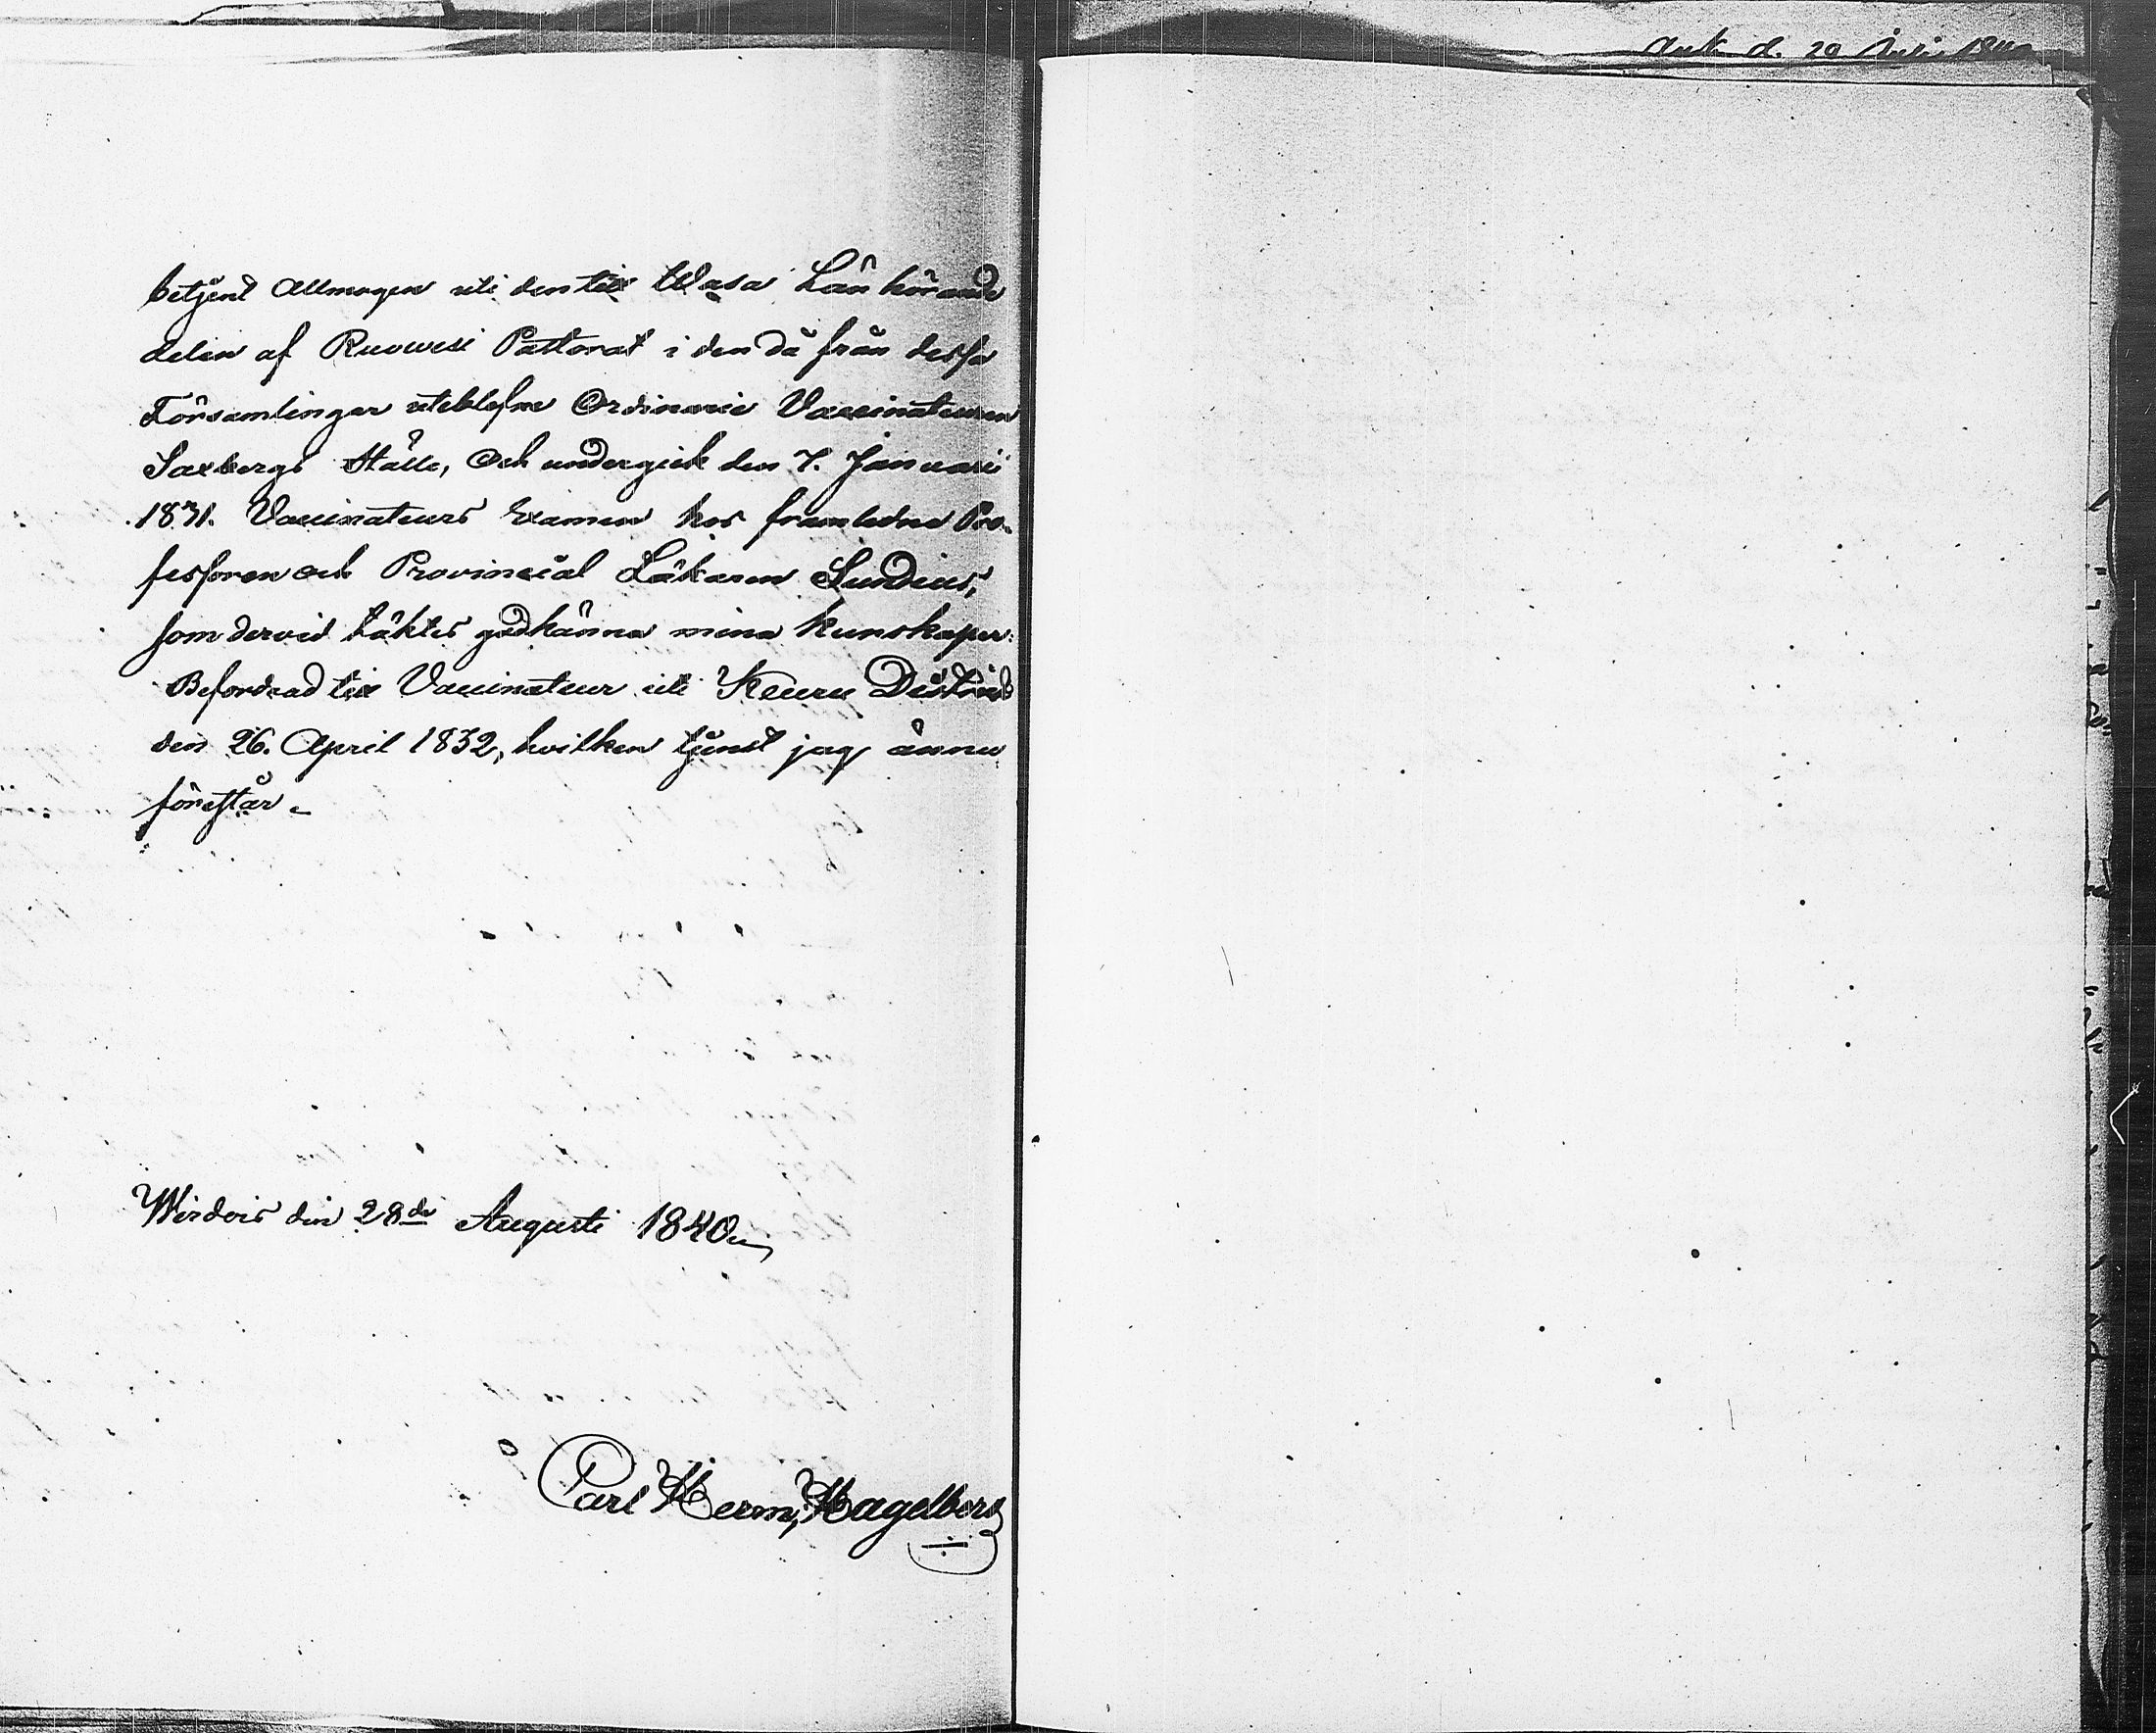 betjent Allmogen uti den till Wasa Län hörande
delen af Ruowesi Pastorat i den då från dessa
Församlingar uteblefne Ordinarie Vaccinateuren
Saxbergs Ställe, Och undergick den 7. Januarii
1831. Vaccinateurs Examen hos framledne Pro-
fessoren och Provincial Läkaren Lundius,
som dervid täktes godkänna mina kunskaper:
Befordrad till Vaccinateur uti Keuru District
den 26. April 1832, hvilken tjenst jag ännu
förestår.
Wirdois den 28de Augusti 1840
Carl Herm, Hagelberg
d. 20